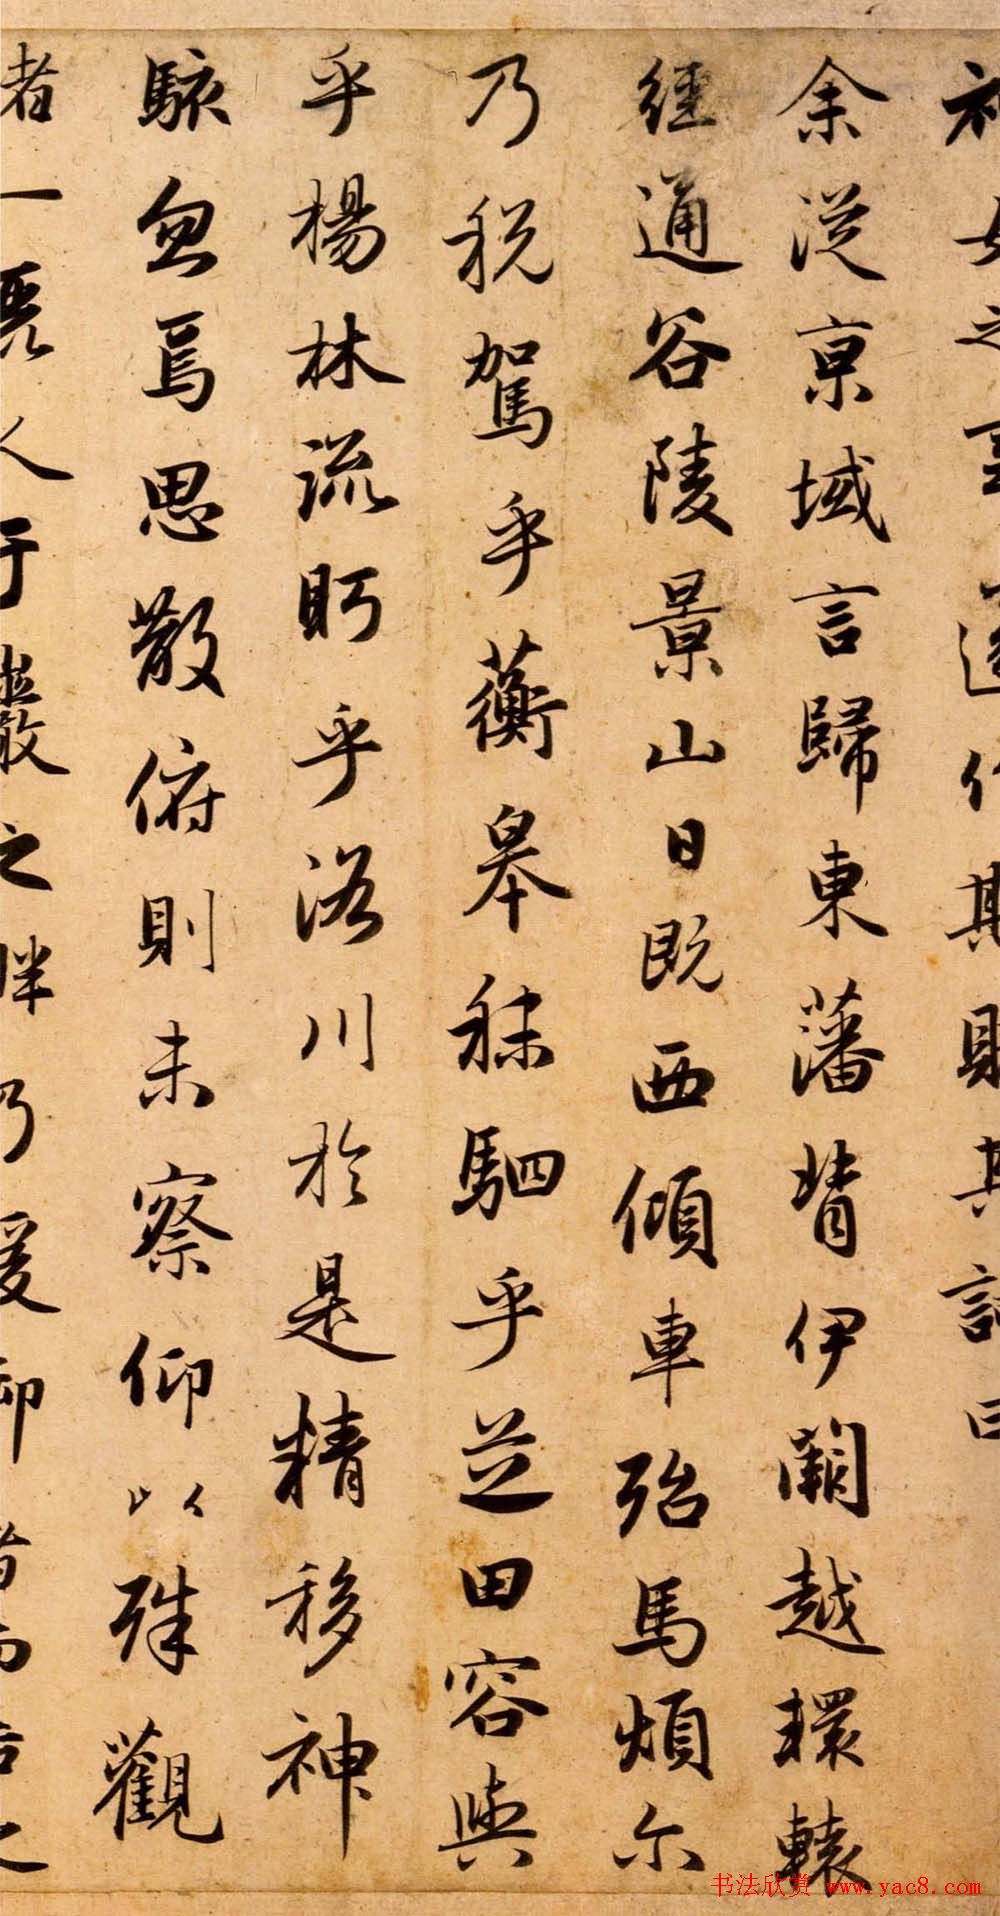 神女之事遂作斯賦其詞曰
余從京域言歸東藩背伊闕越轘轅
經通谷陵景山日既西傾車殆馬煩尔
乃税駕乎蘅皋秣駟乎芝田容與
乎楊林流眄乎洛川於是精移神
駭忽焉思散俯則未察仰以殊觀
睹一麗人于巖之畔乃援御者而告之
书法欣赏 www.yac8.com